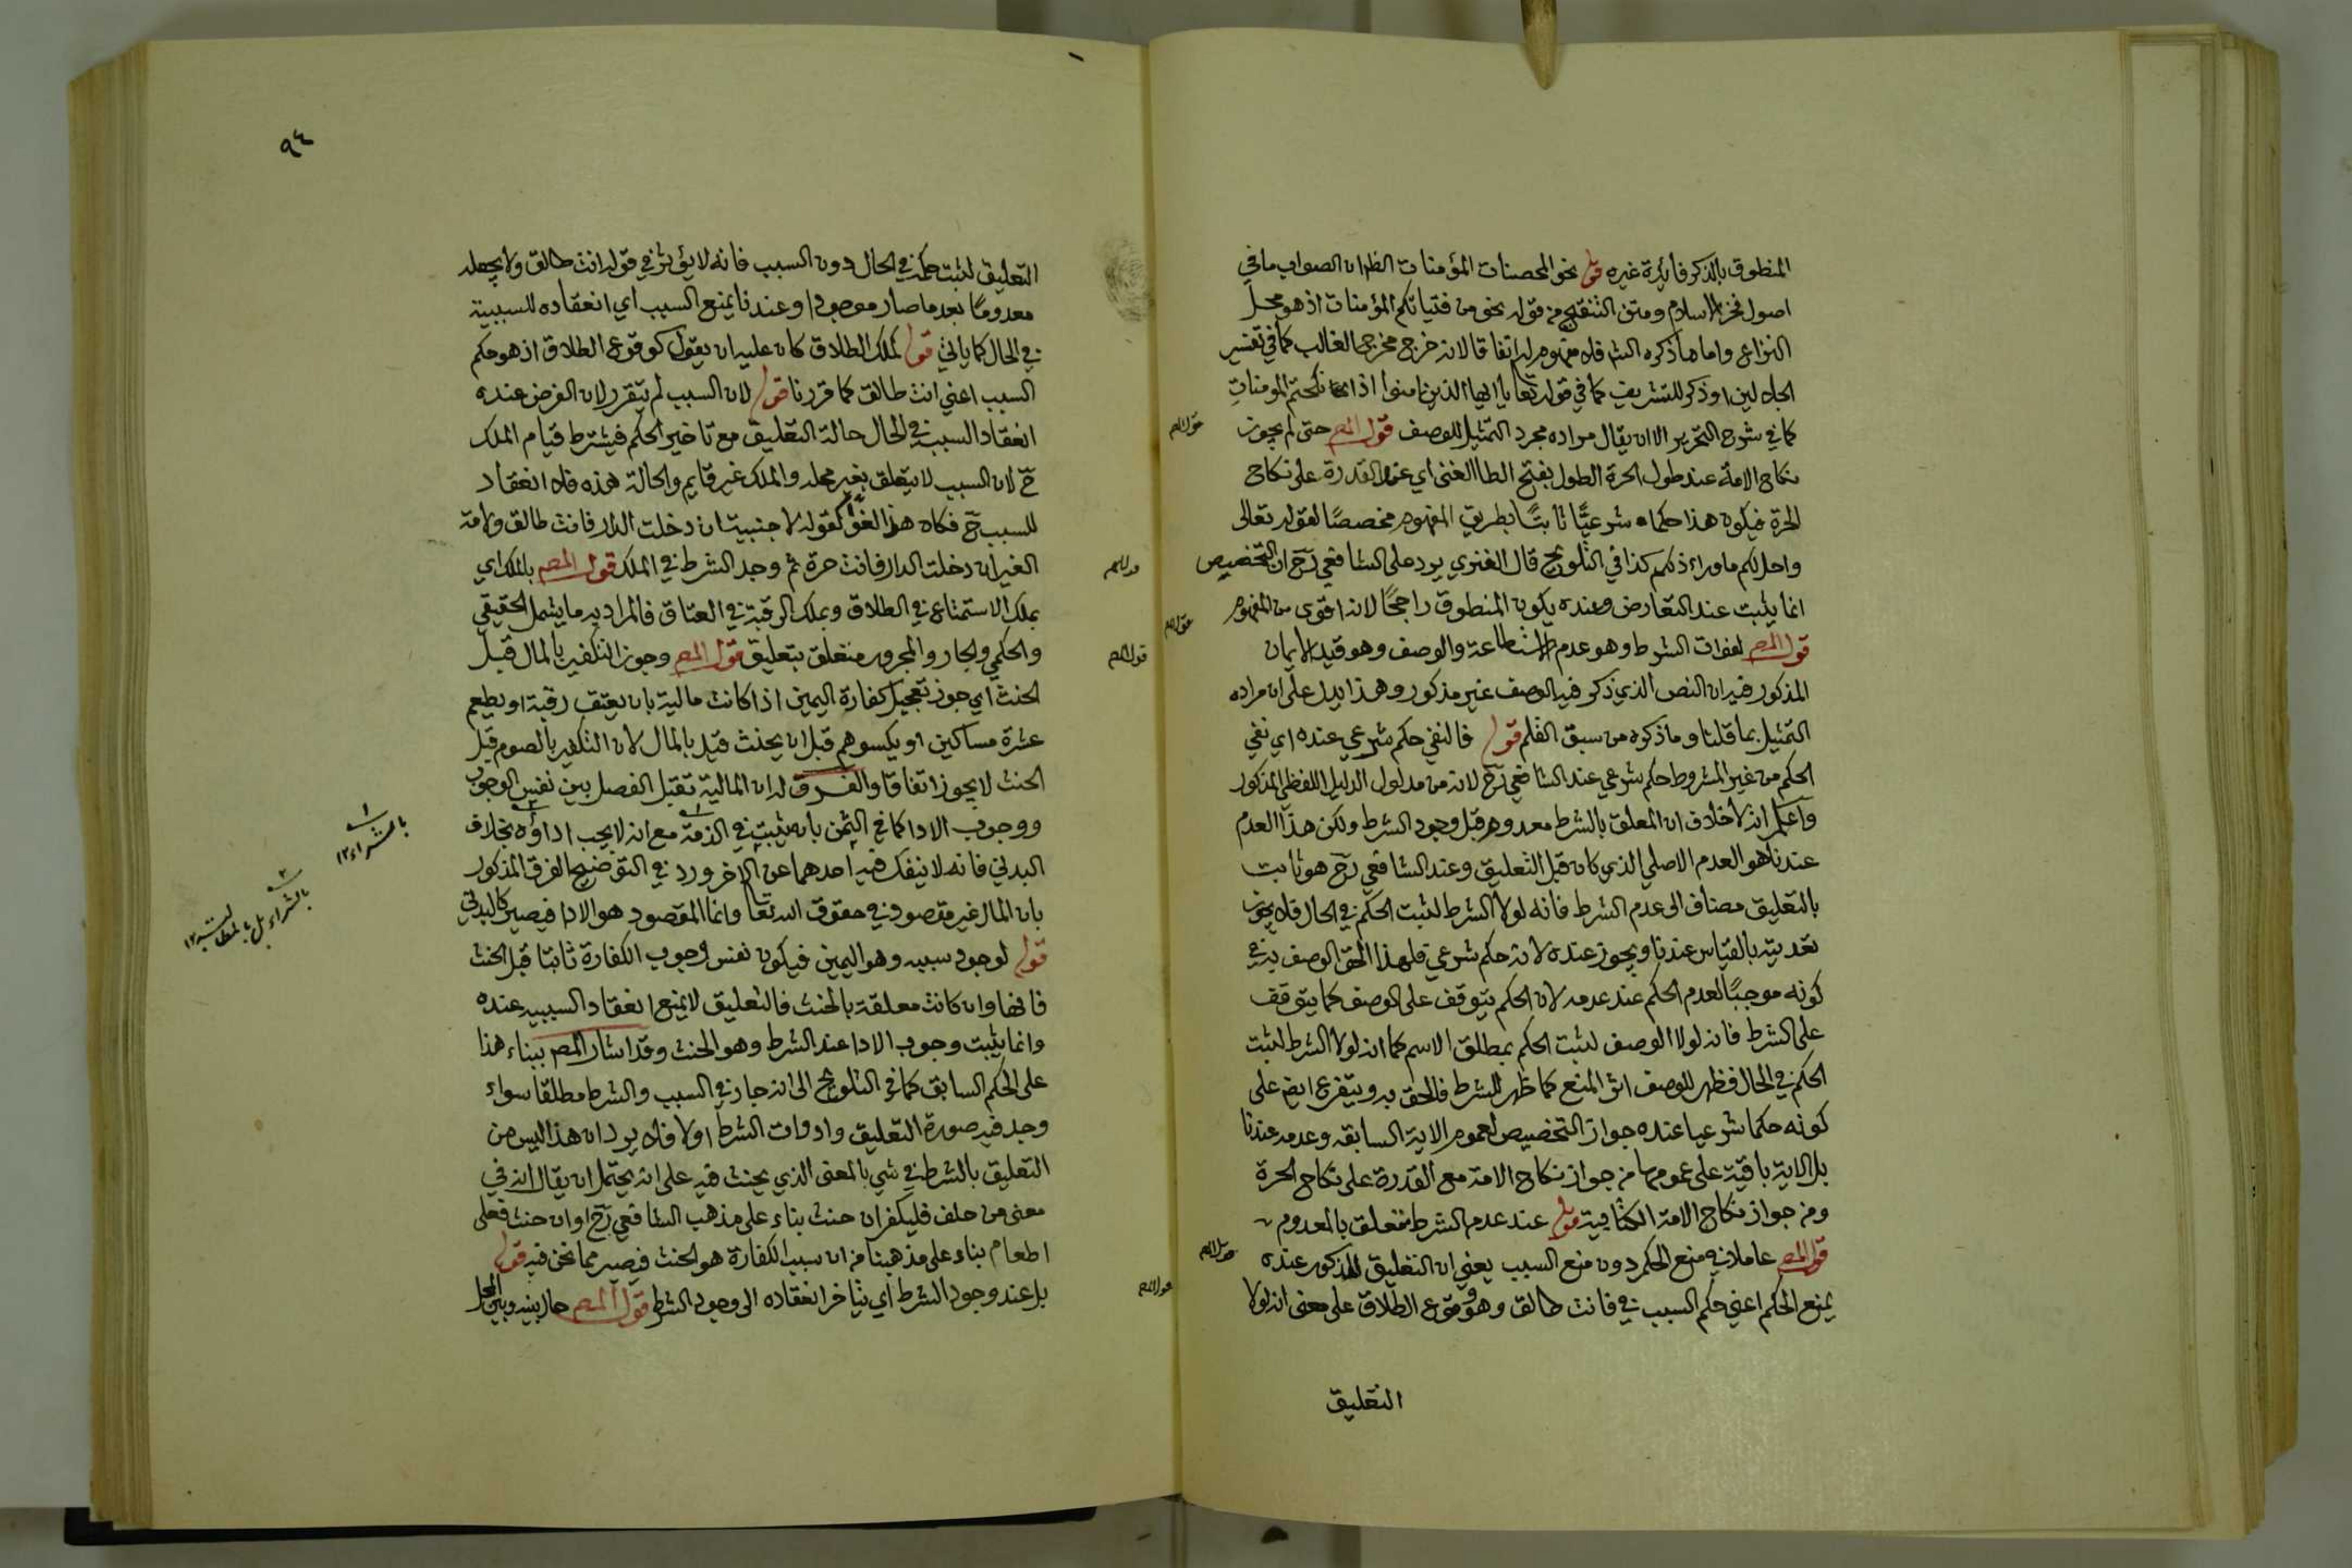 المنطوق بالذكر فائدة غيره قوله نحو المحصنات المؤمنات الظ ان الصواب ما في
اصول فخر الاسلام ومتن التنقيح من قوله نحو من فتياتكم المؤمنات اذ هو محل
النزاع واما ما ذكره الش فلا مفهوم له اتفاقا لانه خرج مخرج الغالب كما في تفسير
الجلالين او ذكر للتشريف كما في قوله تعا يا ايها الذين امنوا اذا نكحتم المومنات
كما في شرح التحرير الا ان يقال مراده مجرد التمثيل للوصف قول المص حتى لم يجوز
نكاح الامة عند طول الحرة الطول بفتح الطا الغنى اي عند القدرة على نكاح
الحرة فيكون هذا حكما شرعيًا ثابتًا بطريق المفهوم مخصصًا لقوله تعالى
واحل لكم ما وراء ذلكم كذا في التلويح قال الفنري يرد على الشافعي رح ان التخصيص
انما يثبت عند التعارض وعنده يكون المنطوق راجحًا لانه اقوى من المفهوم
قول المص لفوات الشرط وهو عدم الاستطاعة والوصف وهو قيد الايمان
المذكور فيه ان النص الذي ذكر فيه الوصف غير مذكور وهذا يدل على ان مراده
التمثيل بما قلنا وما ذكره من سبق القلم قوله فالنفي حكم شرعي عنده اي نفي
الحكم من غير المشروط حكم شرعي عند الشافعي رح لانه من مدلول الدليل اللفظي المذكور
واعلم انه لا خلاف ان المعلق بالشرط معدوم قبل وجود الشرط ولكن هذا العدم
عندنا هو العدم الاصلي الذي كان قبل التعليق وعند الشافعي رح هو ثابت
بالتعليق مضاف الى عدم الشرط فانه لولا الشرط لثبت الحكم في الحال فلا يجوز
تعديته بالقياس عندنا ويجوز عنده لانه حكم شرعي فلهذا الحق الوصف به في
كونه موجبًا لعدم الحكم عند عدمه لان الحكم يتوقف على الوصف كما يتوقف
على الشرط فانه لولا الوصف لثبت الحكم بمطلق الاسم كما انه لولا الشرط لثبت
الحكم في الحال فظهر للوصف اثر المنع كما ظهر للشرط فالحق به ويتفرع ايض على
كونه حكما شرعيا عنده جواز التخصيص لعموم الاية السابقة وعدمه عندنا
بل الاية باقية على عمومها من جواز نكاح الامة مع القدرة على نكاح الحرة
ومن جواز نكاح الامة الكتابية قوله عند عدم الشرط متعلق بالمعدوم
قول المص عاملا في منع الحكم دون منع السبب يعني ان التعليق المذكور عنده
يمنع الحكم اعني حكم السبب في فانت طالق وهو وقوع الطلاق على معنى انه لولا
التعليق
قول المص
قول المص
قول المص
٩٤
التعليق لثبت حكمه في الحال دون السبب فانه لا يؤثر في قوله انت طالق ولا يجعله
معدومًا بعد ما صار موجودا وعندنا يمنع السبب اي انعقاده للسببية
في الحال كما ياتي قوله لملك الطلاق كان عليه ان يقول كوقوع الطلاق اذ هو حكم
السبب اعني انت طالق كما قررنا قوله لان السبب لم يتقرر لان الفرض عنده
انعقاد السبب في الحال حالة التعليق مع تاخير الحكم فيشترط قيام الملك
ح لان السبب لا يتعلق بغير محله والملك غير قايم والحالة هذه فلا انعقاد
للسبب ح فكان هذا لغوا كقوله لاجنبية ان دخلت الدار فانت طالق ولامة
الغير ان دخلت الدار فانت حرة ثم وجد الشرط في الملك قول المص بالملك اي
بملك الاستمتاع في الطلاق وبملك الرقبة في العتاق فالمراد به ما يشمل الحقيقي
والحكمي والجار والمجرور متعلق بتعليق قول المص وجوز التكفير بالمال قبل
الحنث اي جوز تعجيل كفارة اليمين اذا كانت مالية بان يعتق رقبة او يطعم
عشرة مساكين او يكسوهم قبل ان يحنث قيد بالمال لان التكفير بالصوم قبل
الحنث لا يجوز اتفاقا والفرق له ان المالية تقبل الفصل بين نفس الوجوب
ووجوب الادا كما في الثمن بان يثبت في الذمة مع انه لا يجب اداؤه بخلاف
البدني فانه لا ينفك فيه احدهما عن الاخر ورد في التوضيح الفرق المذكور
بان المال غير مقصود في حقوق الله تعا وانما المقصود هو الادا فيصير كالبدني
قوله لوجود سببه وهو اليمين فيكون نفس وجوب الكفارة ثابتا قبل الحنث
فانها وان كانت معلقة بالحنث فالتعليق لا يمنع انعقاد السببيه عنده
وانما يثبت وجوب الادا عند الشرط وهو الحنث وقد اشار المص ببناء هذا
على الحكم السابق كما في التلويح الى انه جاز في السبب والشرط مطلقا سواء
وجد فيه صورة التعليق وادوات الشرط اولا فلا يرد ان هذا ليس من
التعليق بالشرط في شي بالمعنى الذي يحنث فيه على انه يحتمل ان يقال انه في
معنى من حلف فليكفر ان حنث بناء على مذهب الشافعي رح او ان حنث فعلى
اطعام بناء على مذهبنا من ان سبب الكفارة هو الحنث فيصير مما نحن فيه قوله
بل عند وجود الشرط اي يتاخر انعقاده الى وجود الشرط قول المص حال بينه وبين المحل
قول المص
قول المص
قول المص
بالشراء ١٢
بالشراء بل بالمطالبة ١٢